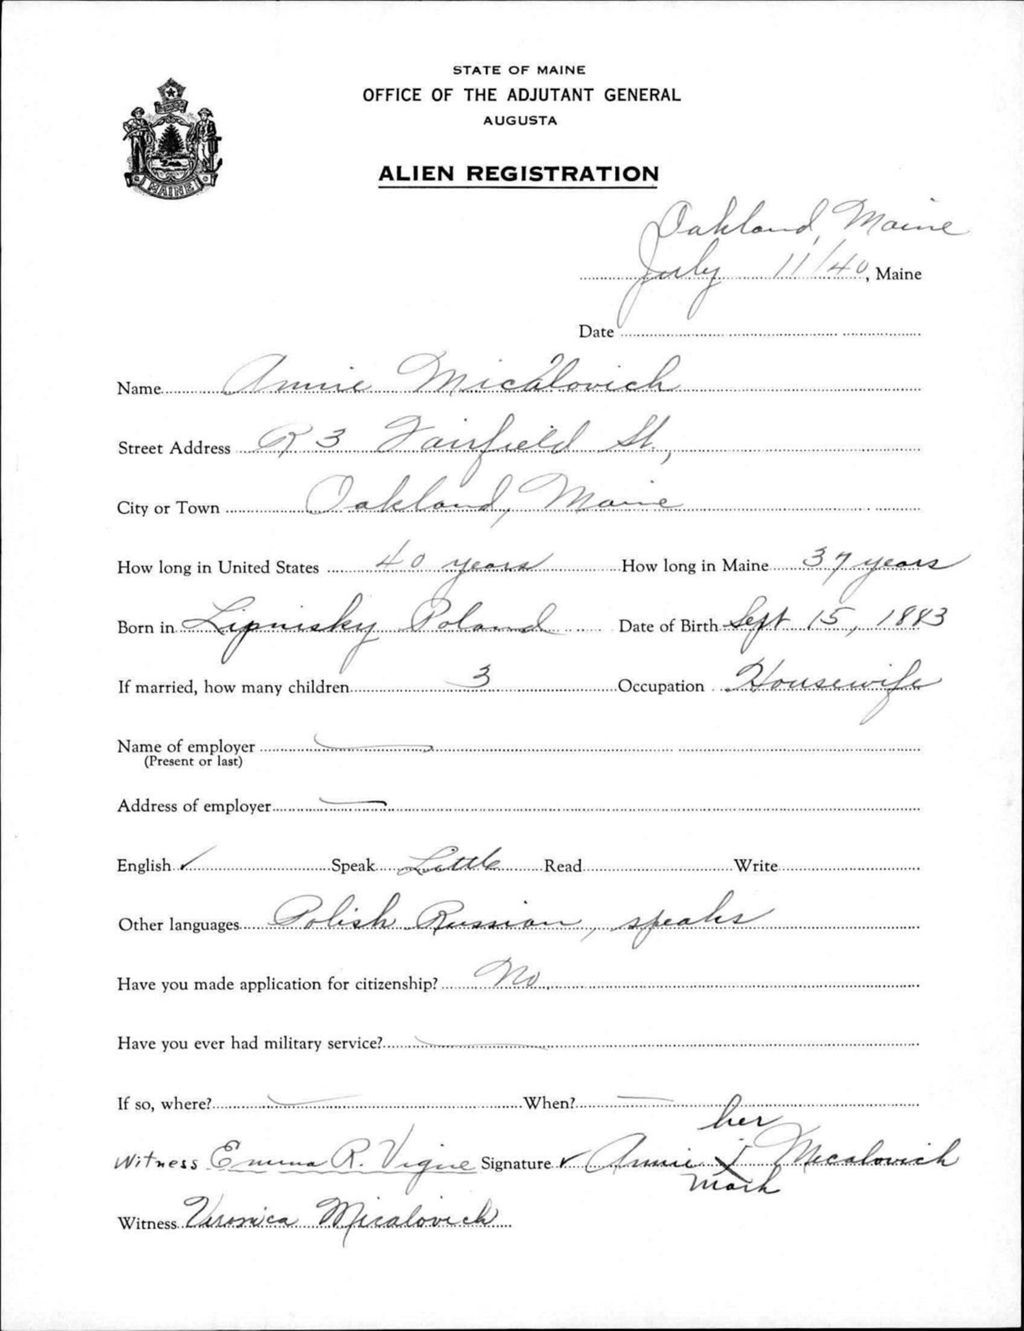 STATE OF MAINE
OFFICE OF THE ADJUTANT GENERAL
AUGUSTA
ALIEN REGISTRATION
MAINE
Oakland, Maine
July 11/40, Maine
Date
Name Annie Micalovich
Street Address R 3 Fairfield St.,
City or Town Oakland, Maine
How long in United States 40 years How long in Maine 37 years
Born in Lipnisky Poland Date of Birth Sept 15, 1883
If married, how many children 3 Occupation Housewife
Name of employer
(Present or last)
Address of employer
English ✓ Speak Little Read Write
Other languages Polish Russian, speaks
Have you made application for citizenship? No
Have you ever had military service?
If so, where? When?
her
Witness Emma R. Vigue Signature ✓ Annie X Micalovich
mark
Witness Veronica Micalovich